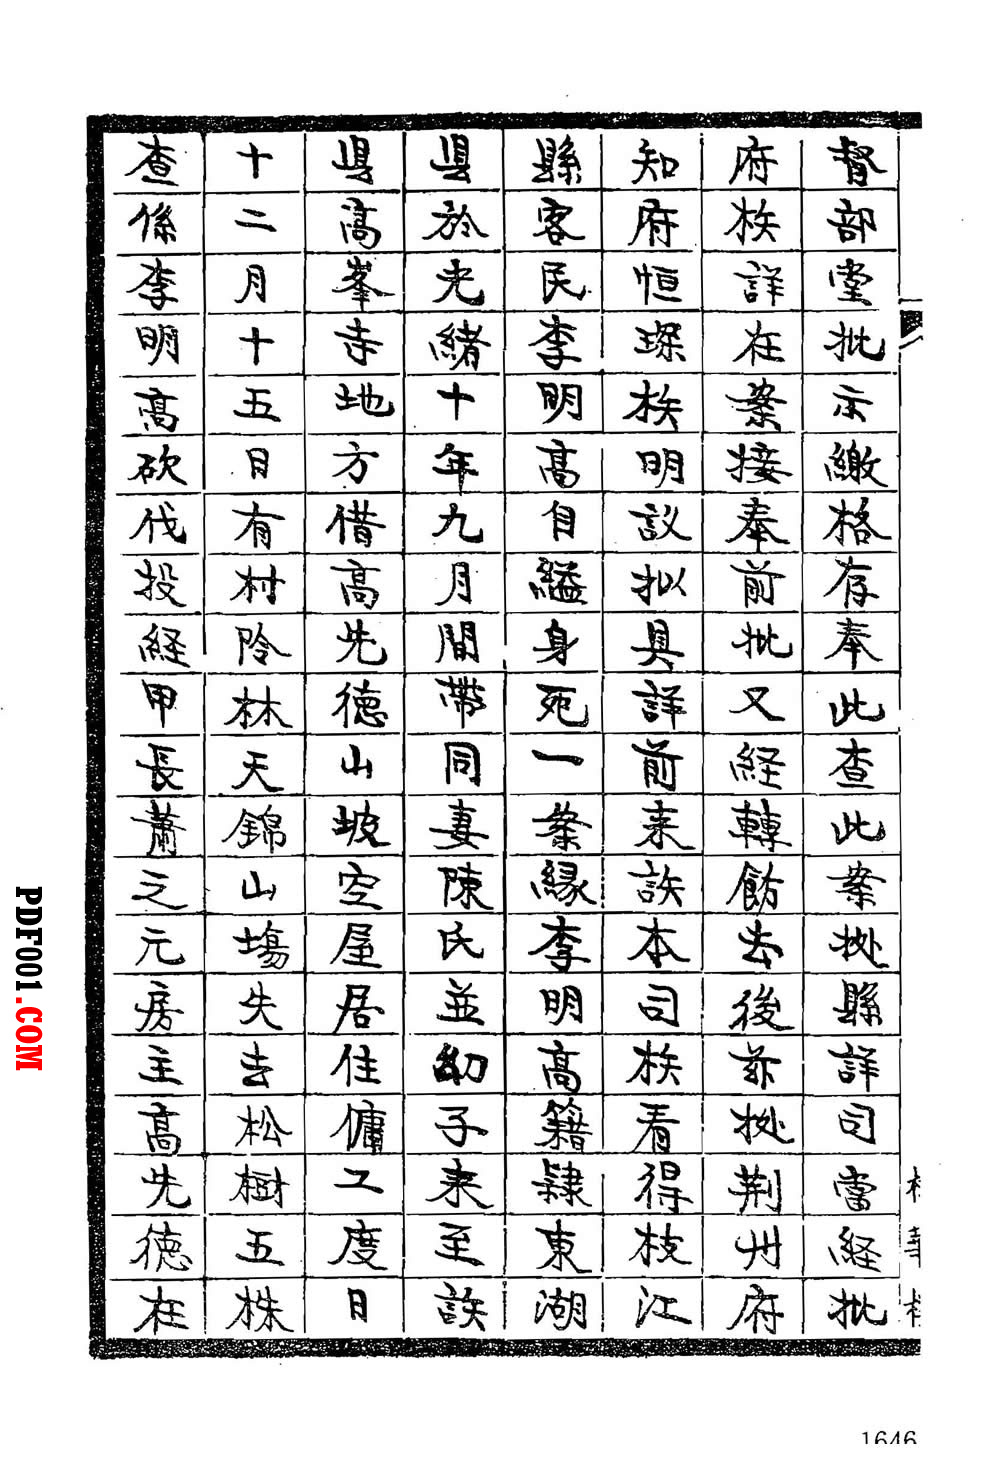 督部堂批示繳格存奉此查此案㨿縣詳司當経批
府核詳在案接奉前批又経轉飭去後茲㨿荆州府
知府恒琛核明議拟具詳前来該本司核看得枝江
縣客民李明高自縊身死一案縁李明高籍隸東湖
县於光緒十年九月間帶同妻陳氏並幼子来至該
县高峯寺地方借高先德山坡空屋居住傭工度日
十二月十五日有村隣林天錦山塲失去松樹五株
查係李明高砍伐投経甲長蕭之元房主高先德在
PDF001.COM
1646